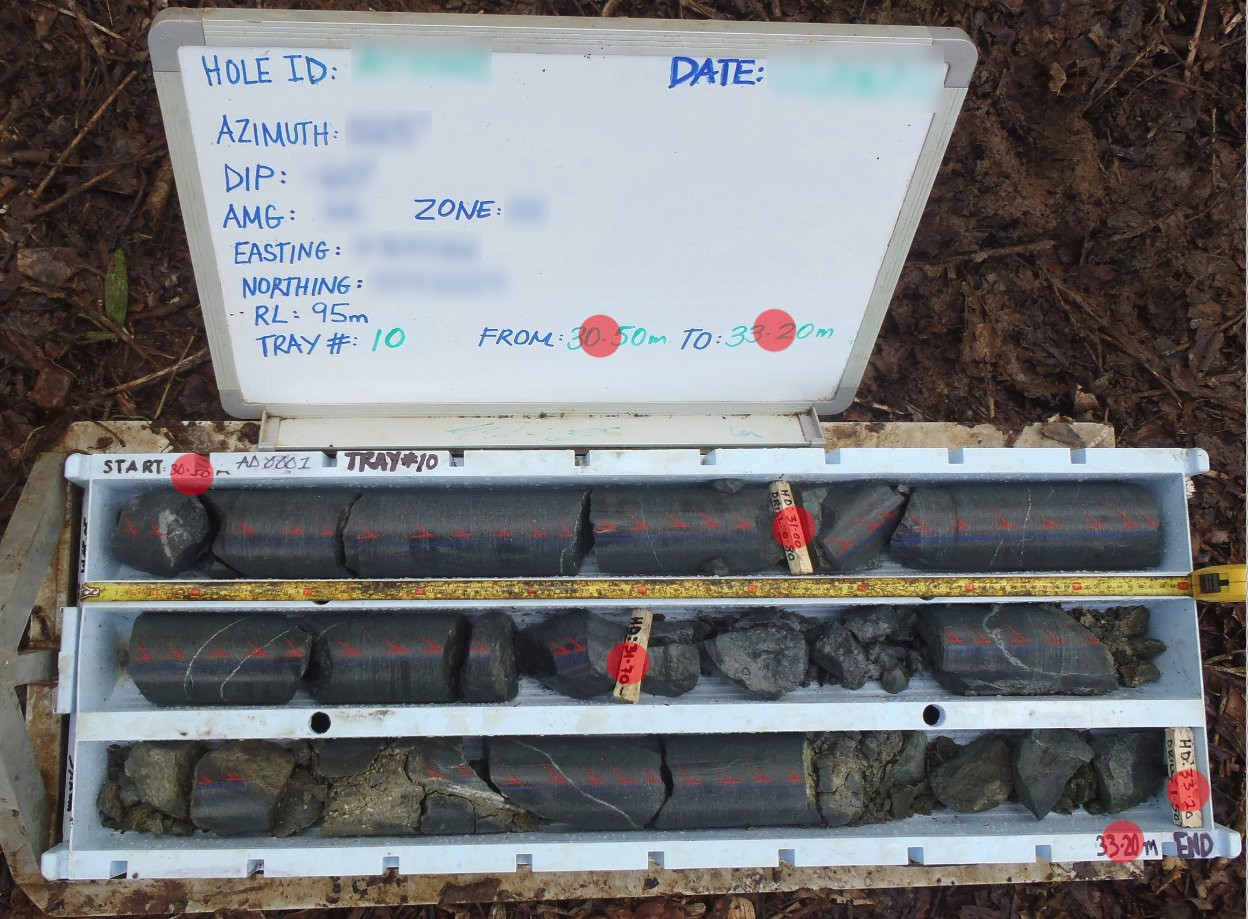 HOLE ID:
DATE:
AZIMUTH:
DIP:
AMG: ZONE:
EASTING:
NORTHING:
RL: 95m
TRAY #: 10 FROM: 30.50m TO: 33.20m
START: 30.50m AD0001 TRAY#10
HD: 31.00
HD: 31.70
HD: 33.20
33.20m END